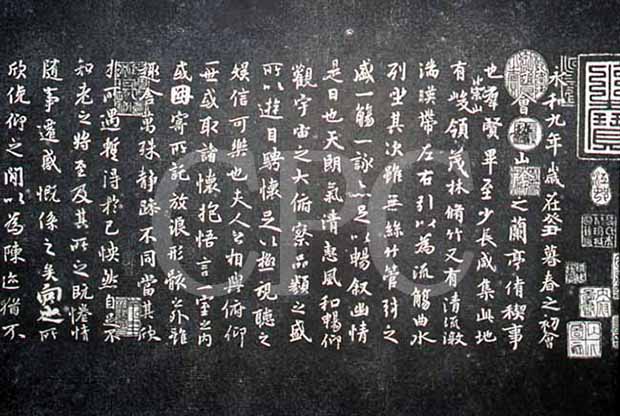 永和九年歲在癸丑暮春之初會
會山之蘭亭脩禊事
也群賢畢至少長咸集此地
有崇山峻領茂林脩竹又有清流激
湍暎帶左右引以為流觴曲水
列坐其次雖無絲竹管弦之
盛一觴一詠亦足以暢叙幽情
是日也天朗氣清惠風和暢仰
觀宇宙之大俯察品類之盛
所以遊目騁懷足以極視聽之
娛信可樂也夫人之相與俯仰
一世或取諸懷抱悟言一室之內
或因寄所託放浪形骸之外雖
趣舍萬殊靜躁不同當其欣
於所遇暫得於己怏然自足不
知老之將至及其所之既惓情
隨事遷感慨係之矣向之所
欣俛仰之閒以為陳迹猶不
CPC